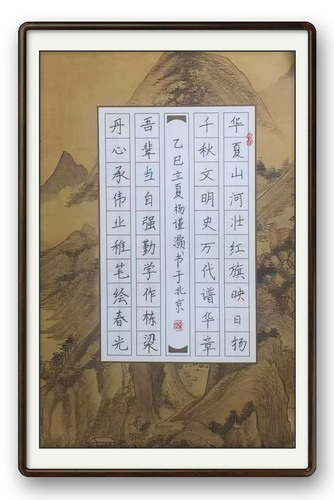 华夏山河壮红旗映日扬
千秋文明史万代谱华章
乙巳立夏杨谨灏书于北京
吾辈当自强勤学作栋梁
丹心承伟业稚笔绘春光